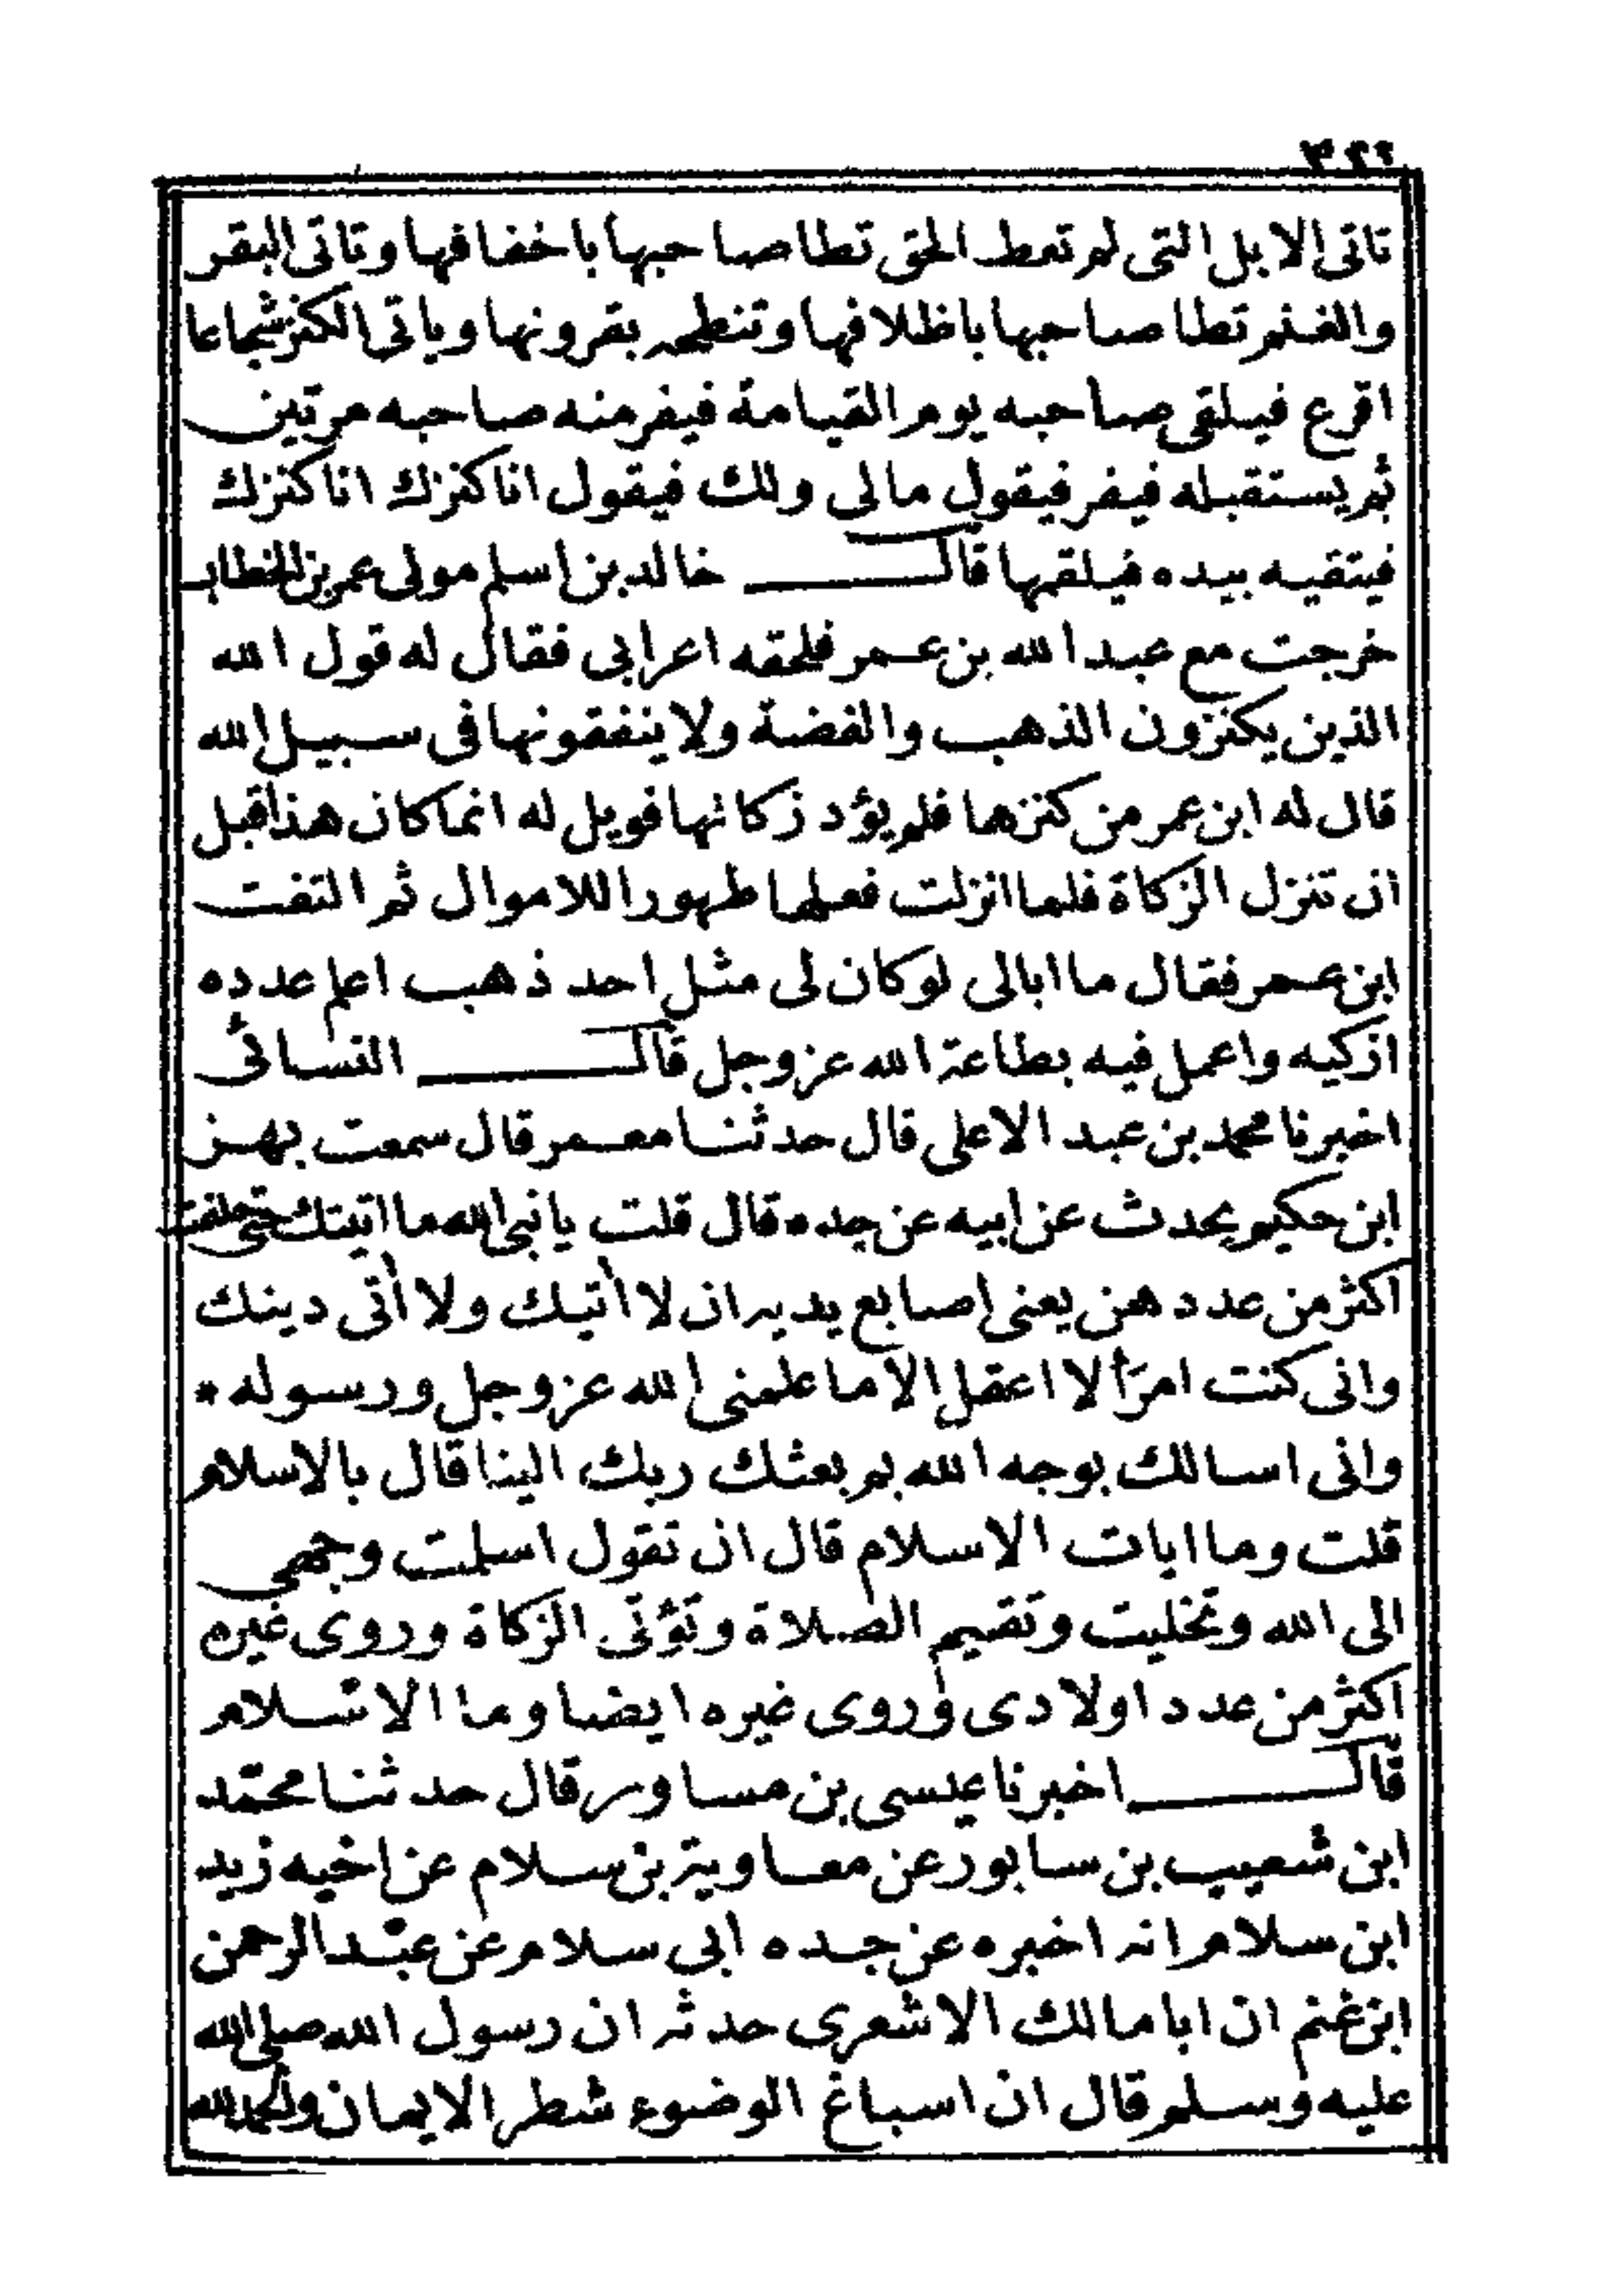 تاتى الابل التى لم تعط الحق تطا صاحبها باخفافها وتاتى البقر
والغنم تطا صاحبها باظلافها وتنطحه بقرونها وياتى الكنز شجاعا
اقرع فيلقى صاحبه يوم القيامة فيفر منه صاحبه مرتين
ثم يستقبله فيفر فيقول مالى ولك فيقول انا كنزك انا كنزك
فيتقيه بيده فيلقمها قال خالد بن اسلم مولى عمر بن الخطاب
خرجت مع عبد الله بن عمر فلحقه اعرابى فقال له قول الله
الذين يكنزون الذهب والفضة ولا ينفقونها فى سبيل الله
قال له ابن عمر من كنزها فلم يؤد زكاتها فويل له انما كان هذا قبل
ان تنزل الزكاة فلما انزلت فعلها طهورا للاموال ثم التفت
ابن عمر فقال ما ابالى لو كان لى مثل احد ذهب اعلم عدده
ازكيه واعمل فيه بطاعة الله عز وجل قال النسائى
اخبرنا محمد بن عبد الاعلى قال حدثنا معمر قال سمعت بهز
ابن حكيم يحدث عن ابيه عن جده قال قلت يا نبى الله ما اتيتك حتى حلفت
اكثر من عدد هن يعنى اصابع يديه ان لا أتيك ولا أتى دينك
وانى كنت امرأ لا اعقل الا ما علمنى الله عز وجل ورسوله *
وانى اسالك بوجه الله بم بعثك ربك الينا قال بالاسلام
قلت وما ايات الاسلام قال ان تقول اسلمت وجهى
الى الله وتخليت وتقيم الصلاة وتؤتى الزكاة وروى غيره
اكثر من عدد اولادى وروى غيره ايضا وما الاسلام
قال اخبرنا عيسى بن مساور قال حدثنا محمد
ابن شعيب بن سابور عن معاوية بن سلام عن اخيه زيد
ابن سلام انه اخبره عن جده ابى سلام عن عبد الرحمن
ابن غنم ان ابا مالك الاشعرى حدثه ان رسول الله صلى الله
عليه وسلم قال ان اسباغ الوضوء شطر الايمان والحمد لله